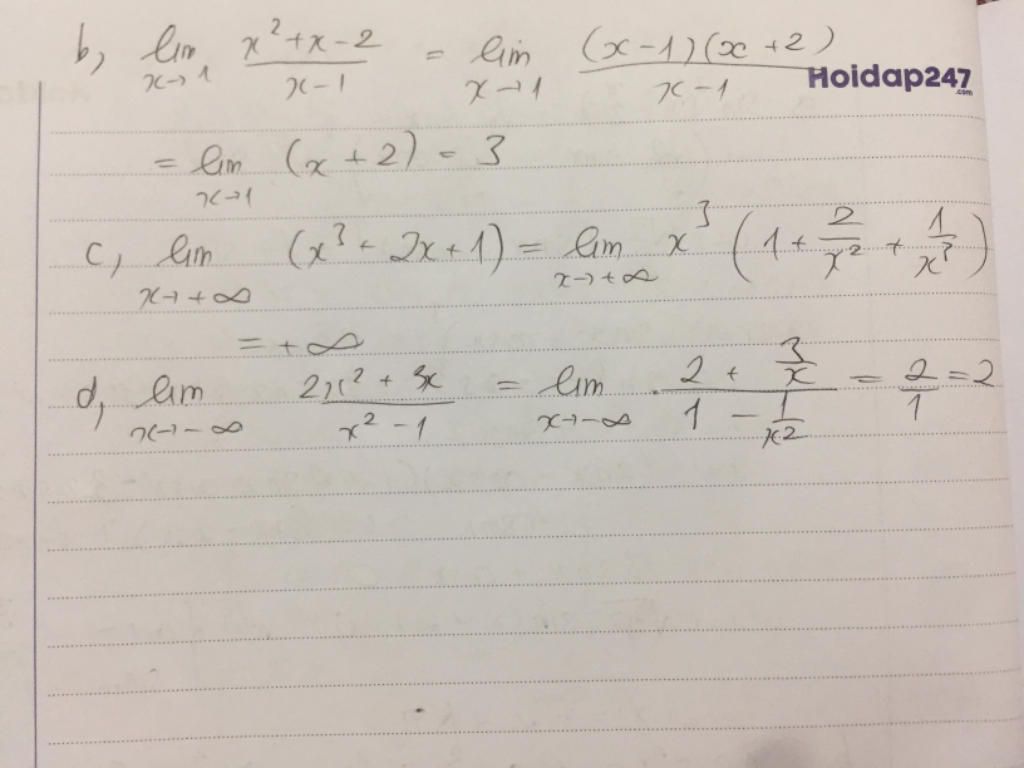 b, lim x→1 (x² + x - 2)/(x - 1) = lim x→1 ((x - 1)(x + 2))/(x - 1)
Hoidap247.com
= lim x→1 (x + 2) = 3
c, lim x→+∞ (x³ + 2x + 1) = lim x→+∞ x³ (1 + 2/x² + 1/x³)
= +∞
d, lim x→-∞ (2x² + 3x)/(x² - 1) = lim x→-∞ (2 + 3/x)/(1 - 1/x²) = 2/1 = 2